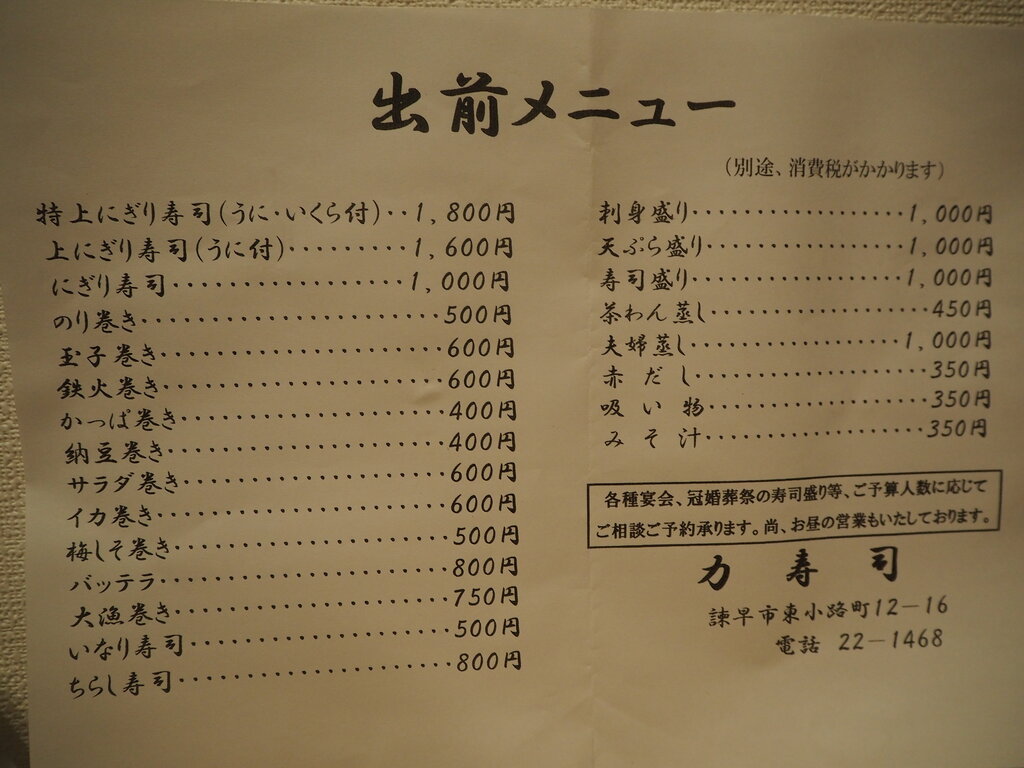 出前メニュー
（別途、消費税がかかります）
特上にぎり寿司(うに・いくら付)‥1,800円
上にぎり寿司(うに付)・・・・・・・・・1,600円
にぎり寿司・・・・・・・・・・・・・・・・・・1,000円
のり巻き・・・・・・・・・・・・・・・・・・・・・・・500円
玉子巻き・・・・・・・・・・・・・・・・・・・・・・600円
鉄火巻き・・・・・・・・・・・・・・・・・・・・・・600円
かっぱ巻き・・・・・・・・・・・・・・・・・・・・400円
納豆巻き・・・・・・・・・・・・・・・・・・・・・・400円
サラダ巻き・・・・・・・・・・・・・・・・・・・・600円
イカ巻き・・・・・・・・・・・・・・・・・・・・・・・600円
梅しそ巻き・・・・・・・・・・・・・・・・・・・・・500円
バッテラ・・・・・・・・・・・・・・・・・・・・・・・800円
大漁巻き・・・・・・・・・・・・・・・・・・・・・・750円
いなり寿司・・・・・・・・・・・・・・・・・・・・・500円
ちらし寿司・・・・・・・・・・・・・・・・・・・・・・800円
刺身盛り・・・・・・・・・・・・・・・・・1,000円
天ぷら盛り・・・・・・・・・・・・・・・・1,000円
寿司盛り・・・・・・・・・・・・・・・・・1,000円
茶わん蒸し・・・・・・・・・・・・・・・・・450円
夫婦蒸し・・・・・・・・・・・・・・・・・1,000円
赤だし・・・・・・・・・・・・・・・・・・350円
吸い物・・・・・・・・・・・・・・・・・350円
みそ汁・・・・・・・・・・・・・・・・・350円
各種宴会、冠婚葬祭の寿司盛り等、ご予算人数に応じて
ご相談ご予約承ります。尚、お昼の営業もいたしております。
力寿司
諫早市東小路町12－16
電話 22－1468